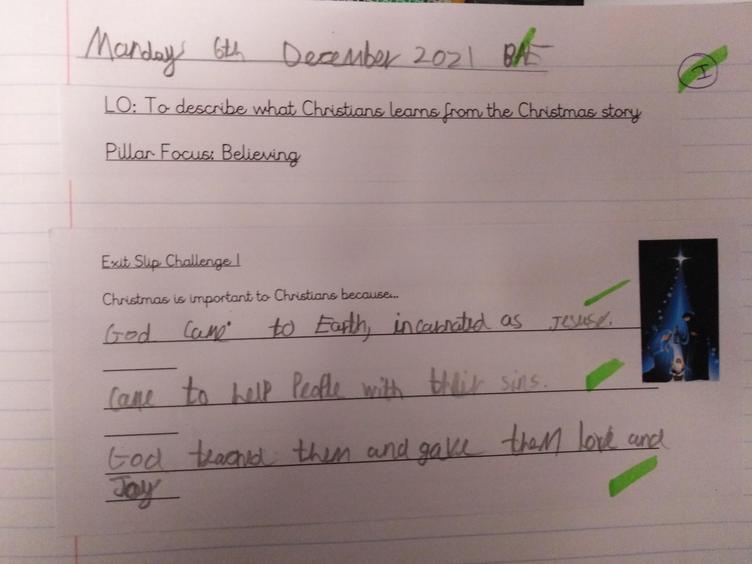 Manday 6th December 2021 BAE
I
LO: To describe what Christians learns from the Christmas story
Pillar Focus: Believing
Exit Slip Challenge 1
Christmas is important to Christians because...
God came to Earth, incarnated as Jesus.
Came to help People with their sins.
God teached them and gave them love and
Joy